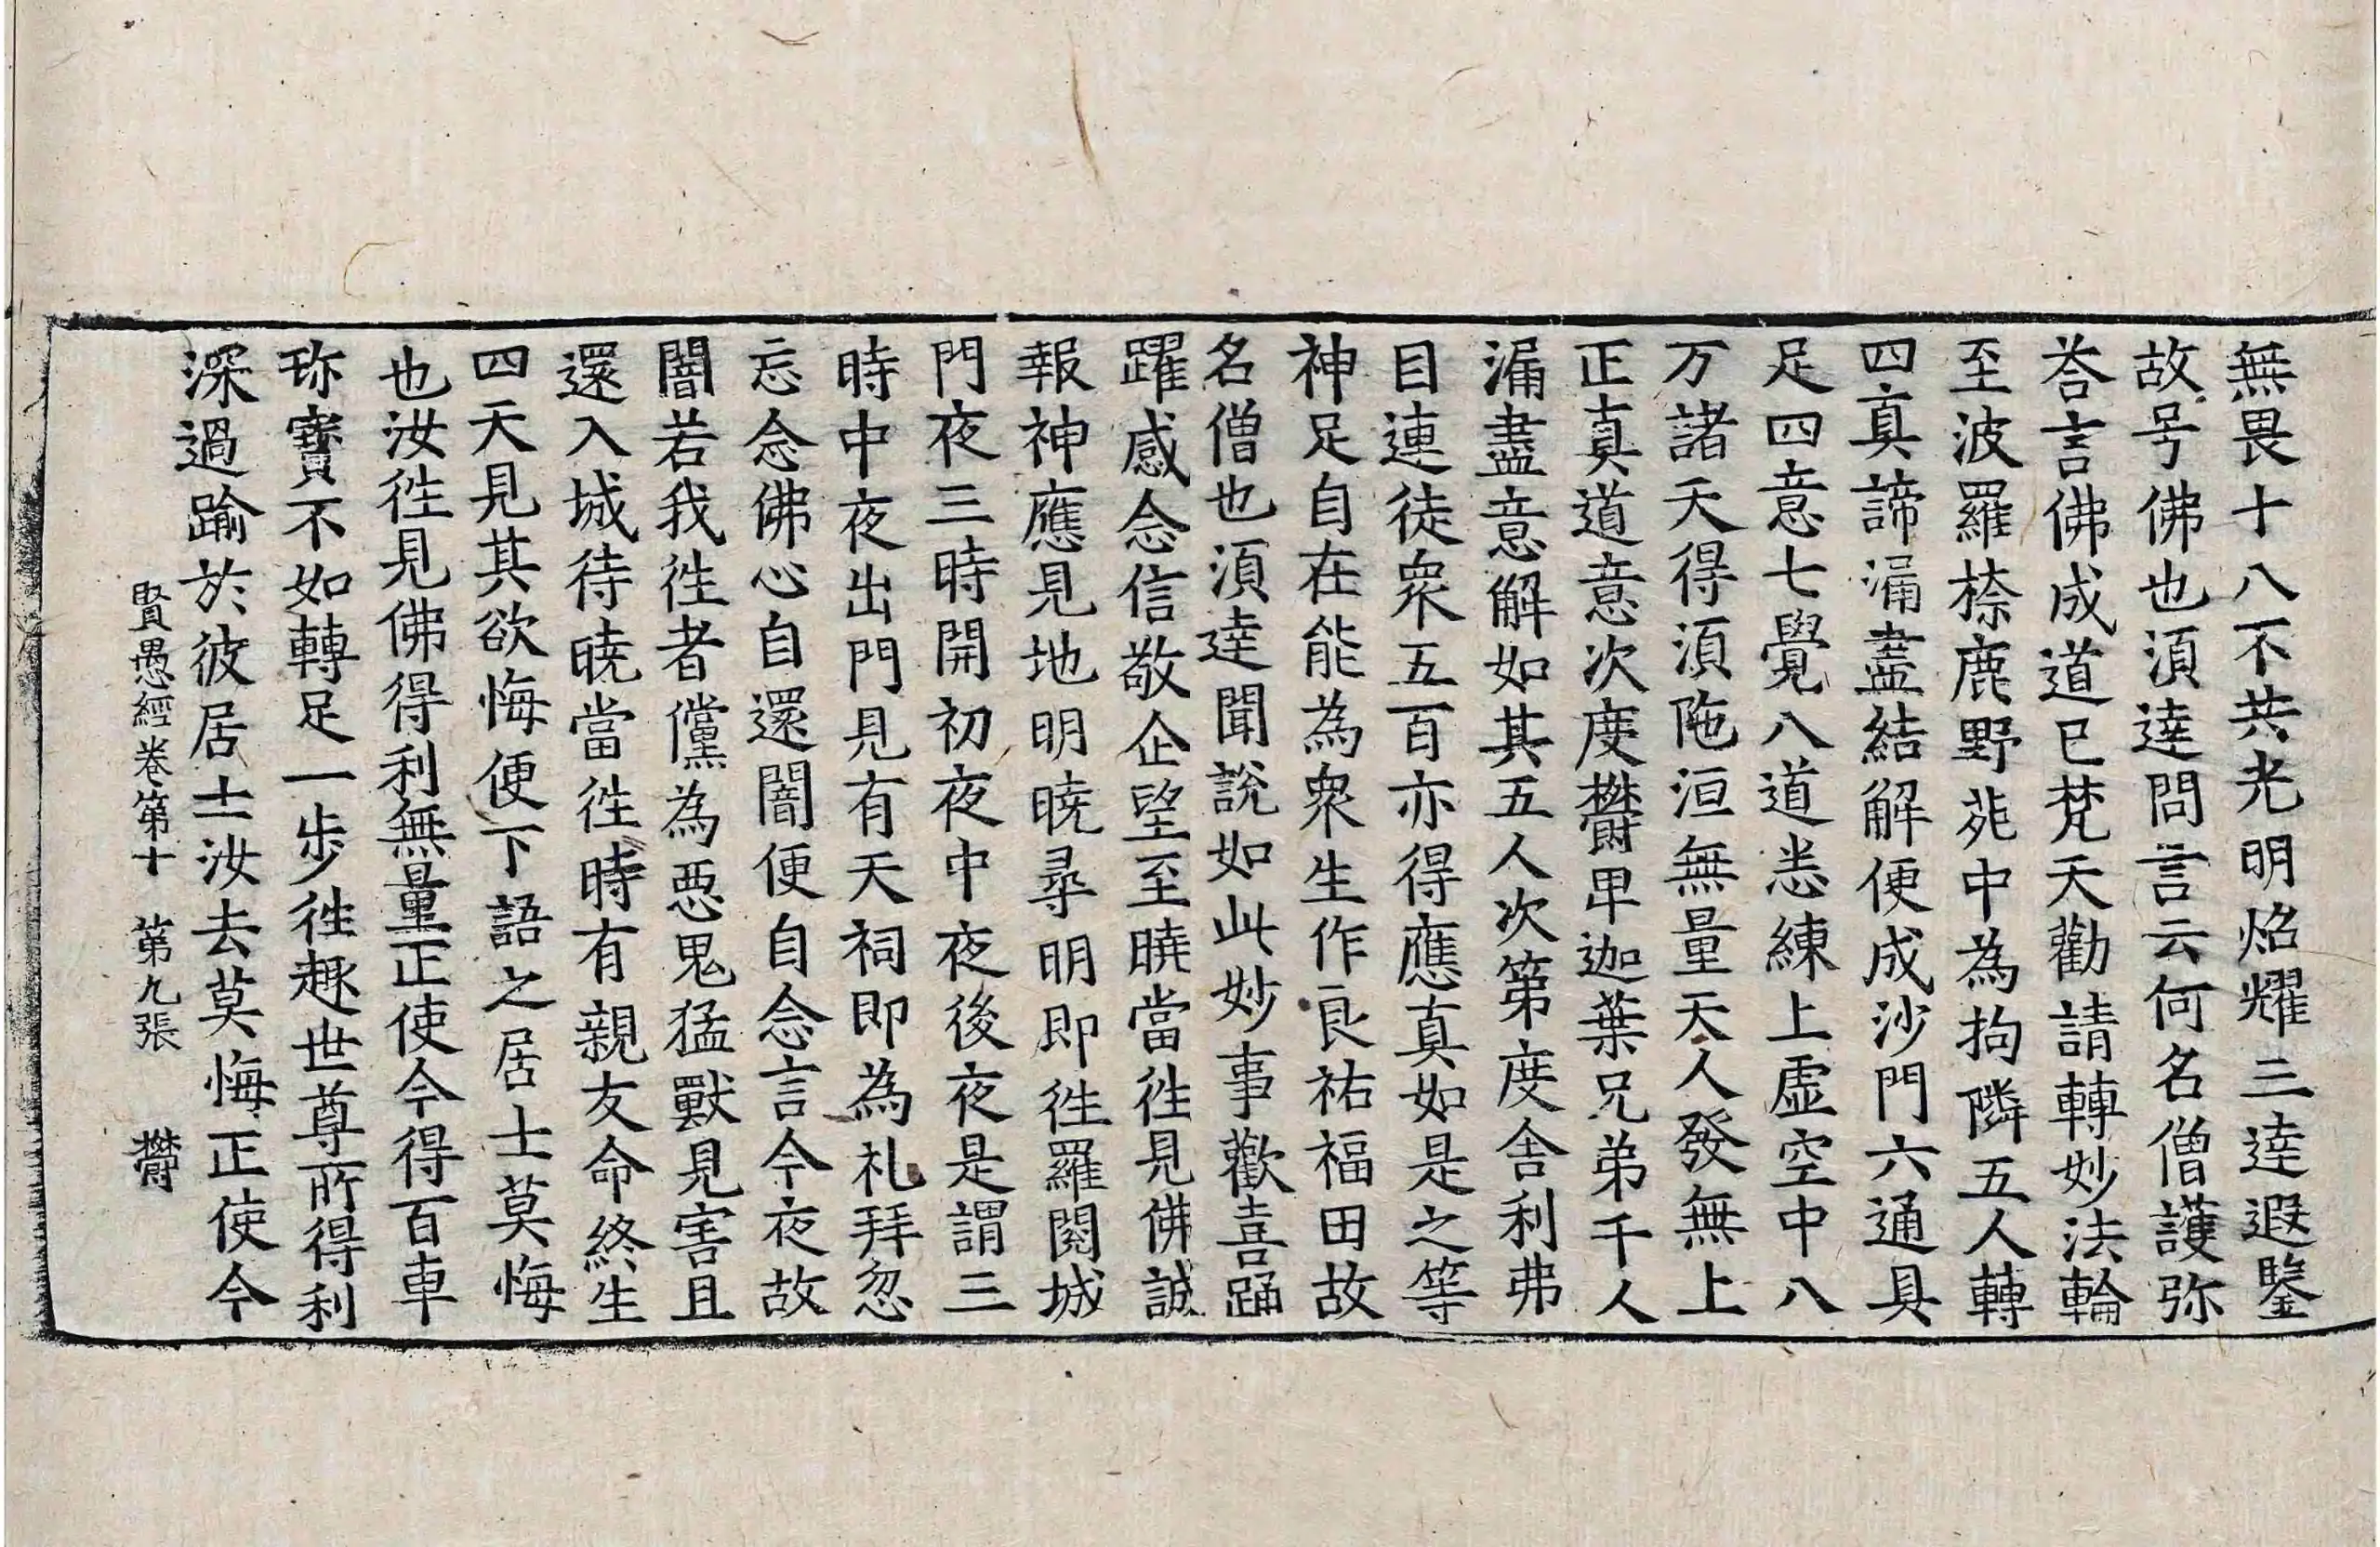 無畏十八不共光明焰耀三達遐鑒
故号佛也湏達問言云何名僧護弥
荅言佛成道已梵天勸請轉妙法輪
至波羅㮈鹿野苑中為拘隣五人轉
四真諦漏盡結解便成沙門六通具
足四意七覺八道悉練上虛空中八
万諸天得湏陁洹無量天人發無上
正真道意次度欝卑迦葉兄弟千人
漏盡意解如其五人次第度舍利弗
目連徒衆五百亦得應真如是之等
神足自在能為衆生作良祐福田故
名僧也湏達聞說如此妙事歡喜踊
躍感念信敬企望至曉當徃見佛誠
報神應見地明曉尋明即徃羅閱城
門夜三時開初夜中夜後夜是謂三
時中夜出門見有天祠即為礼拜忽
忘念佛心自還闇便自念言今夜故
闇若我徃者儻為惡鬼猛獸見害且
還入城待曉當徃時有親友命終生
四天見其欲悔便下語之居士莫悔
也汝徃見佛得利無量正使今得百車
珎寶不如轉足一步徃趣世尊所得利
深過踰於彼居士汝去莫悔正使今
賢愚經卷第十　第九張　欝